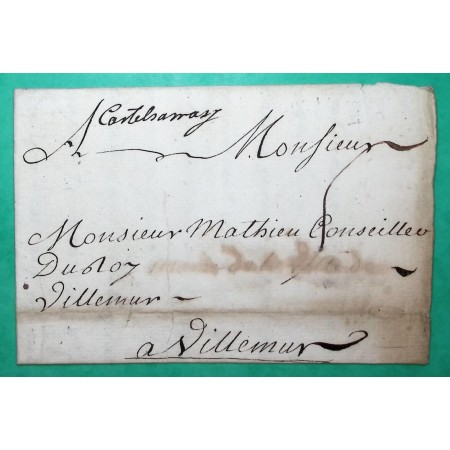 Castelsarrasy
A Monsieur
Monsieur Mathieu Conseiller
Du Roy
Villemur
a Villemur